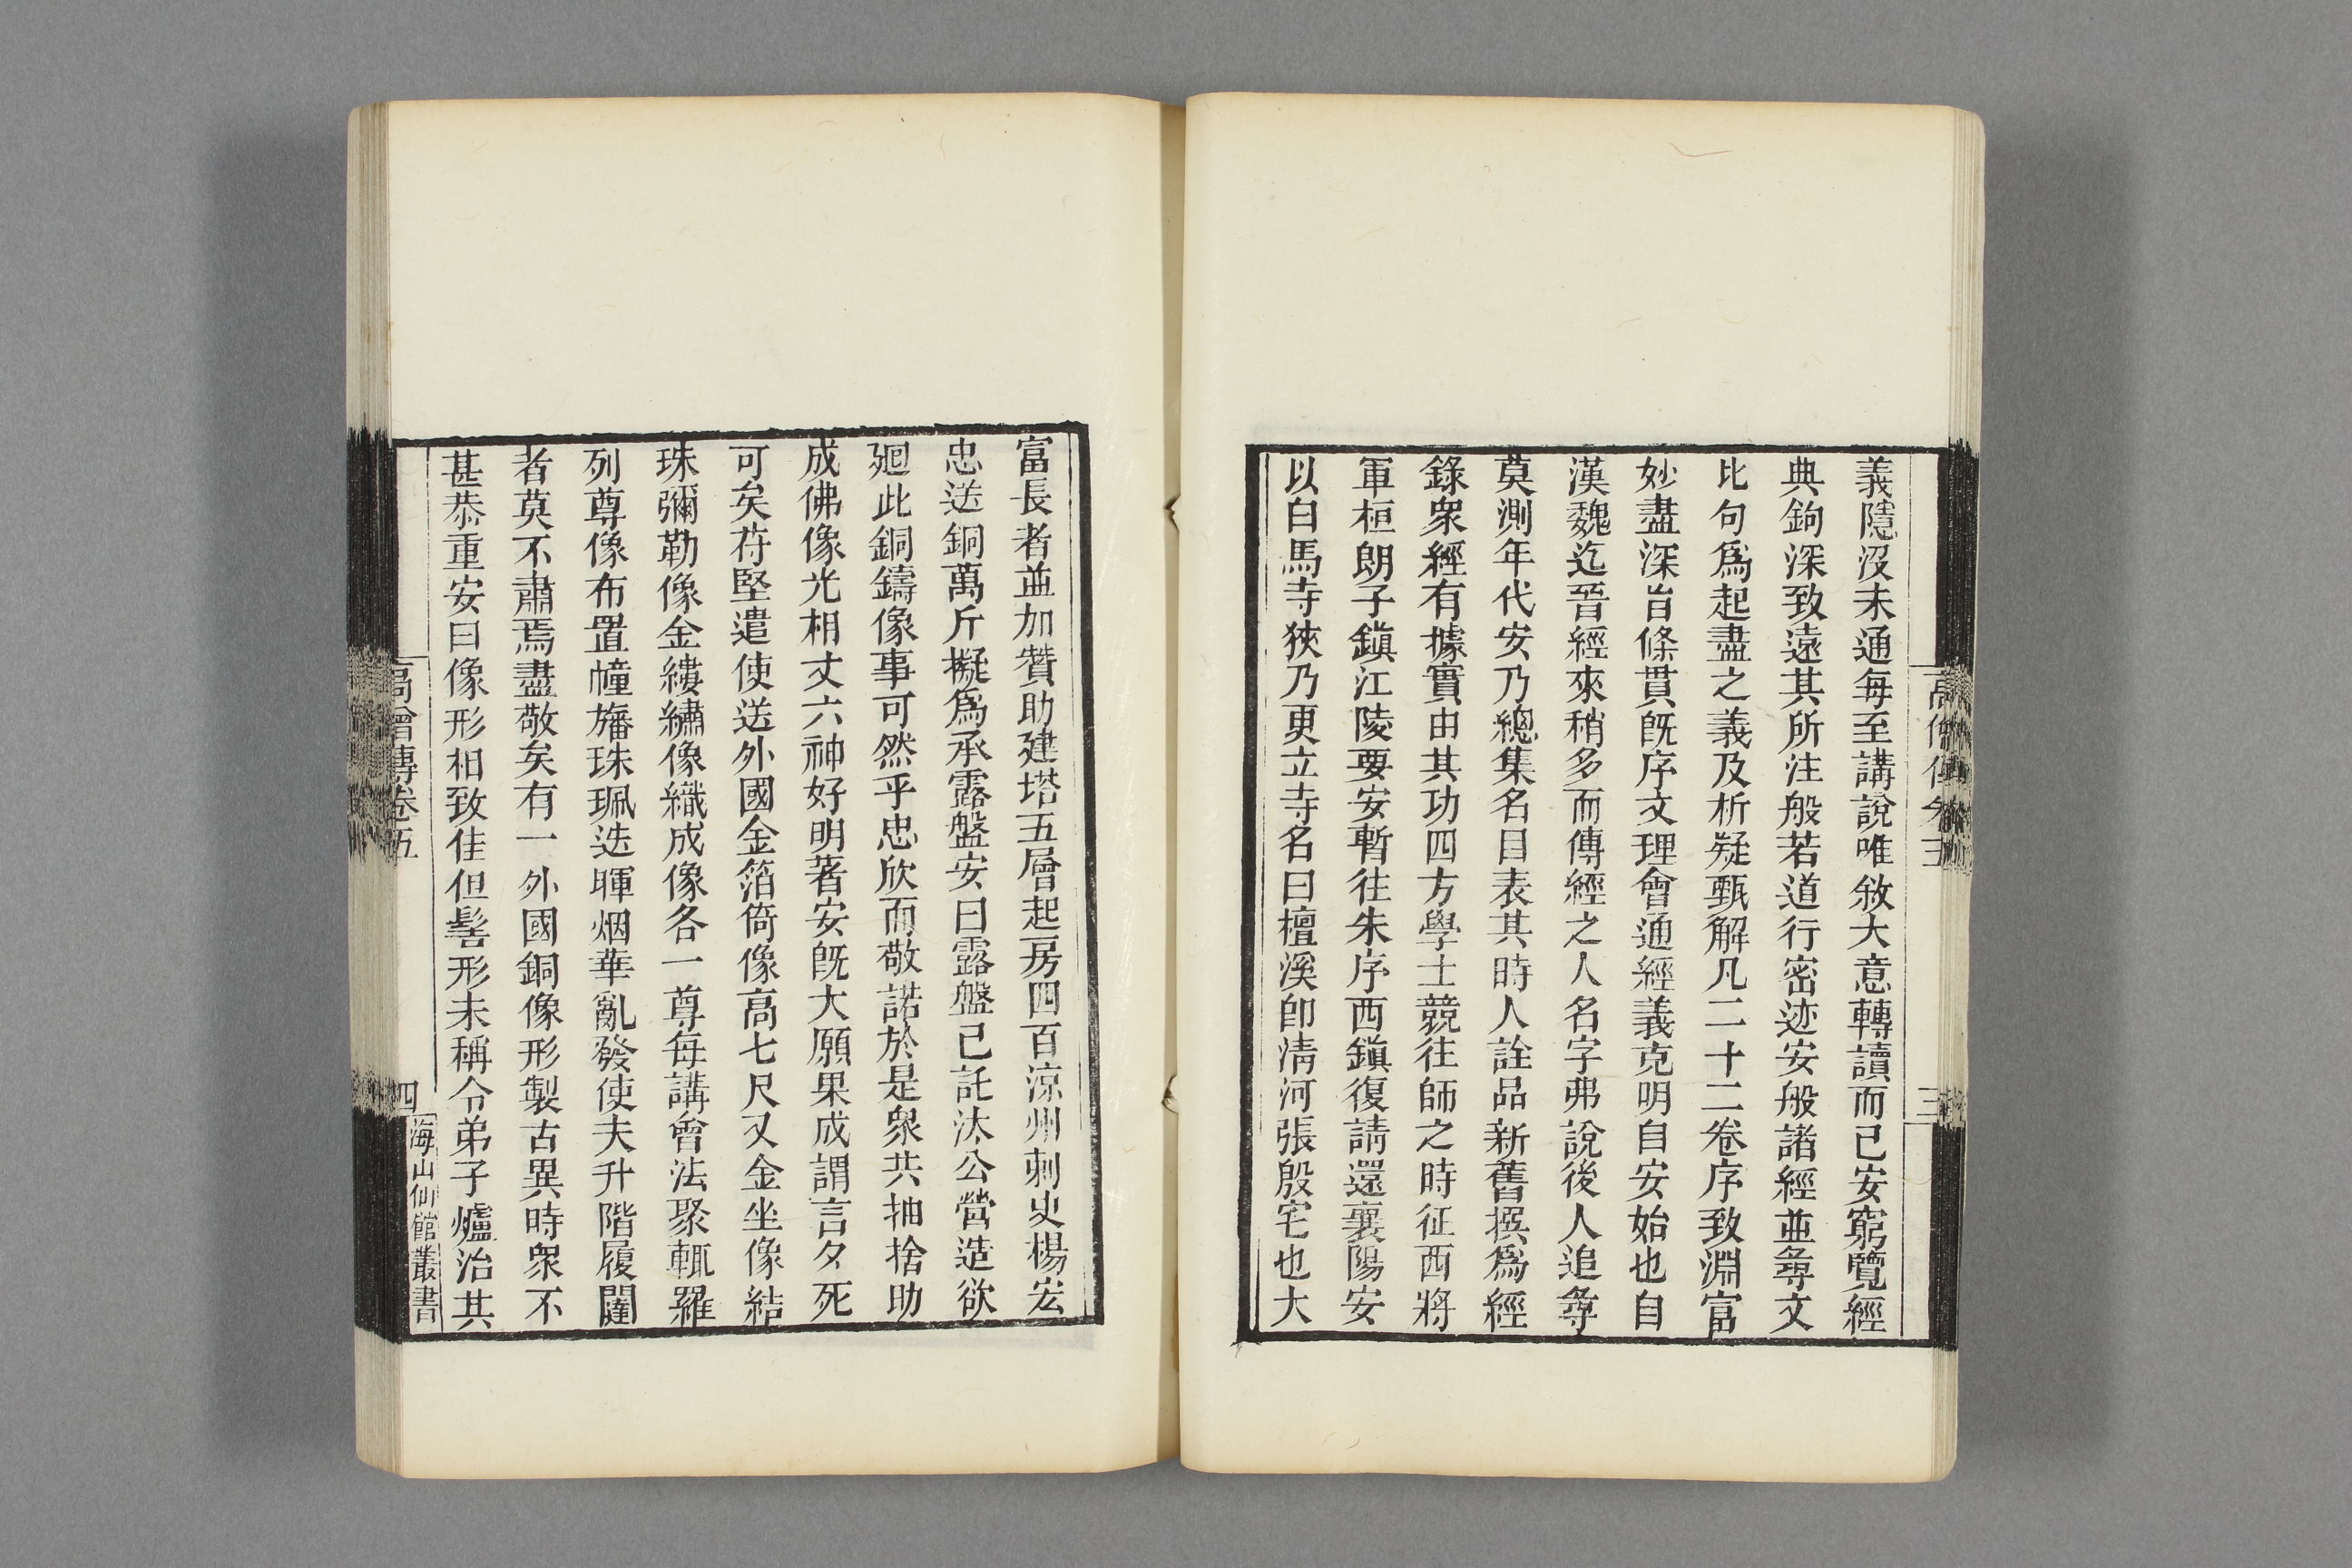 義隱沒未通每至講說唯敘大意轉讀而已安窮覽經
典鉤深致遠其所注般若道行密迹安般諸經並尋文
比句爲起盡之義及析疑甄解凡二十二卷序致淵富
妙盡深旨條貫旣序文理會通經義克明自安始也自
漢魏迄晉經來稍多而傳經之人名字弗說後人追尋
莫測年代安乃總集名目表其時人詮品新舊撰爲經
錄衆經有據實由其功四方學士競往師之時征西將
軍桓朗子鎭江陵要安暫往朱序西鎭復請還襄陽安
以白馬寺狹乃更立寺名曰檀溪卽淸河張殷宅也大
富長者並加贊助建塔五層起房四百涼州刺史楊宏
忠送銅萬斤擬爲承露盤安曰露盤已託汰公營造欲
廻此銅鑄像事可然乎忠欣而敬諾於是衆共抽捨助
成佛像光相丈六神好明著安旣大願果成謂言夕死
可矣苻堅遣使送外國金箔倚像高七尺又金坐像結
珠彌勒像金縷繡像織成像各一尊每講會法聚輒羅
列尊像布置幢旛珠珮迭暉烟華亂發使夫升階履闥
者莫不肅焉盡敬矣有一外國銅像形製古異時衆不
甚恭重安曰像形相致佳但髻形未稱令弟子爐治其
高僧傳卷五
四
海山仙館叢書